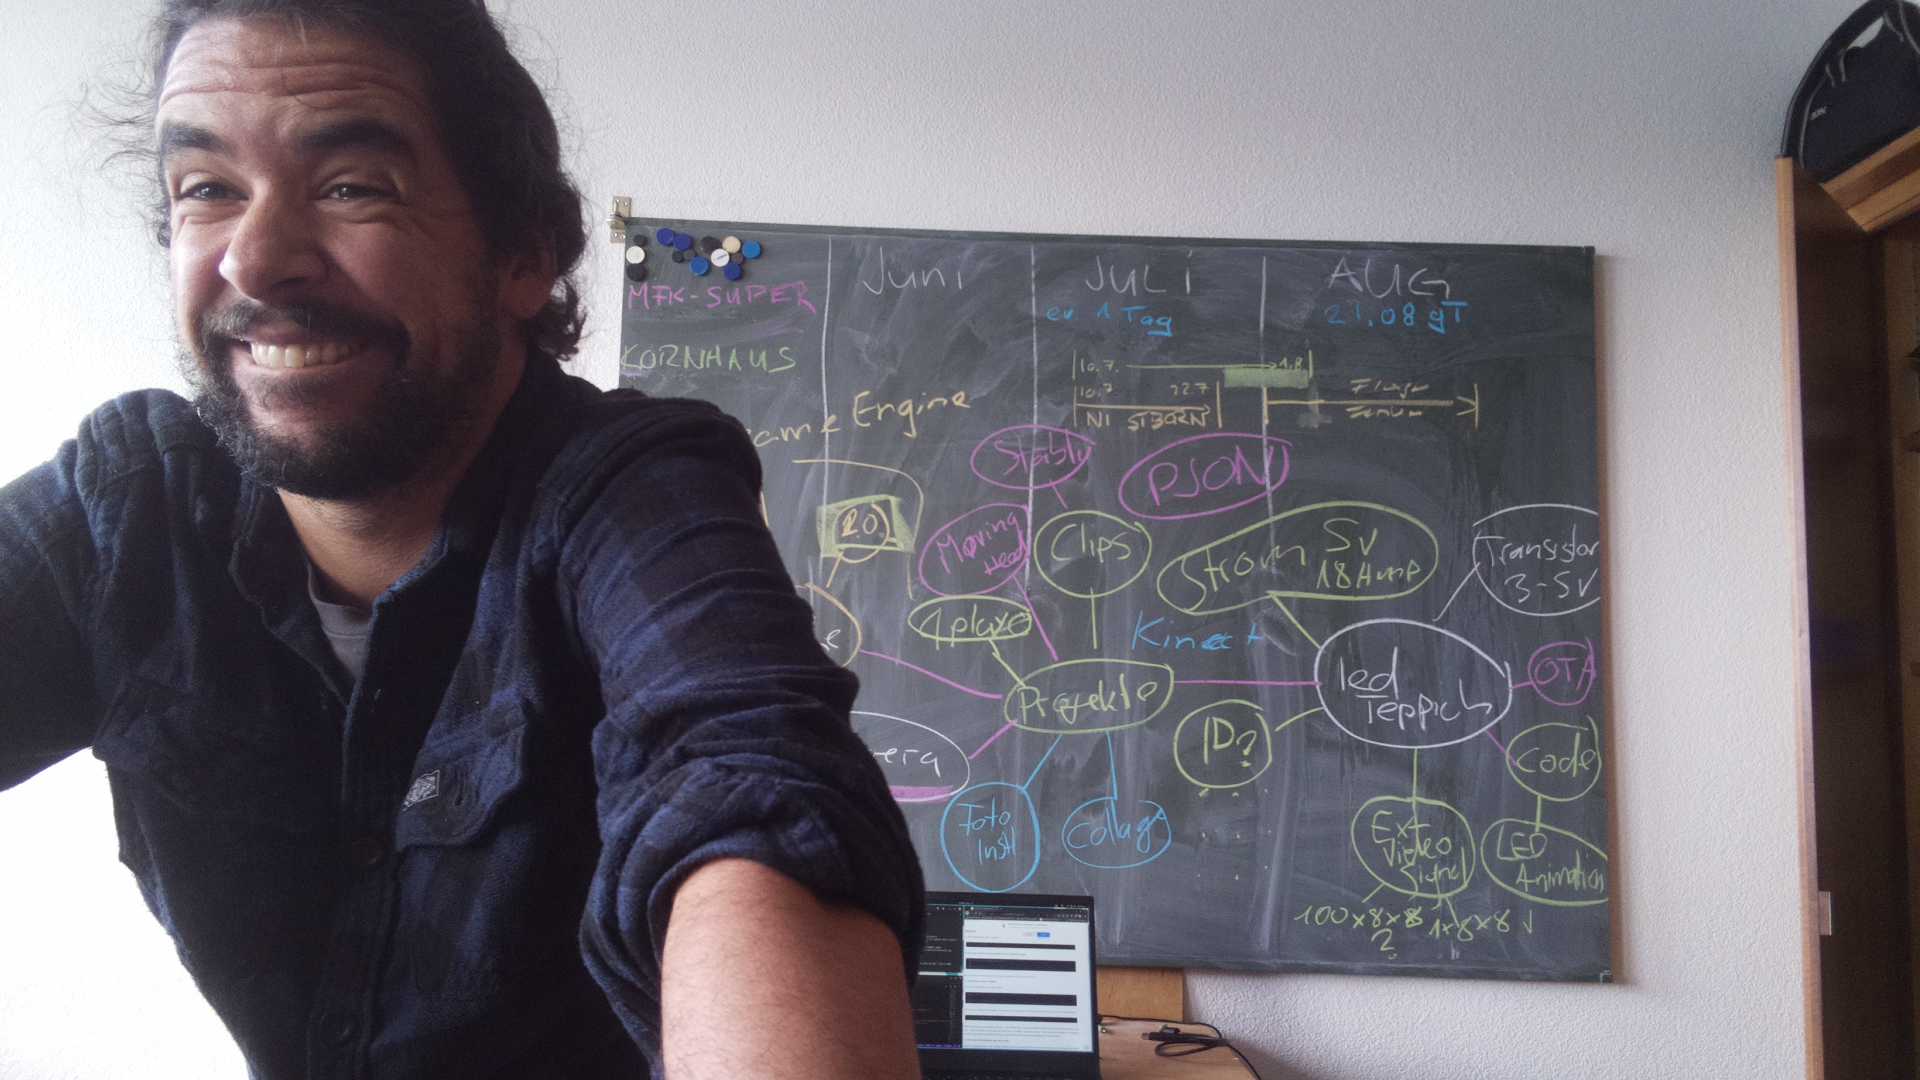 Juni
JULI
AUG
MFK-SUPER
ev 1 Tag
21.08 gT
KORNHAUS
10.7.
1.8
10.7
22.7
NI STBORN
ame Engine
Stabli
PJSON
2.0
Moving
Head
Clips
Strom 5v
18 Amp
Transistor
3-5V
4plaxe
Kinect
e
Projekte
led
Teppich
OTA
era
ID?
Code
Foto
Instl
Collage
Ext
Video
Signal
LED
Animation
100x8x8
1x8x8
?